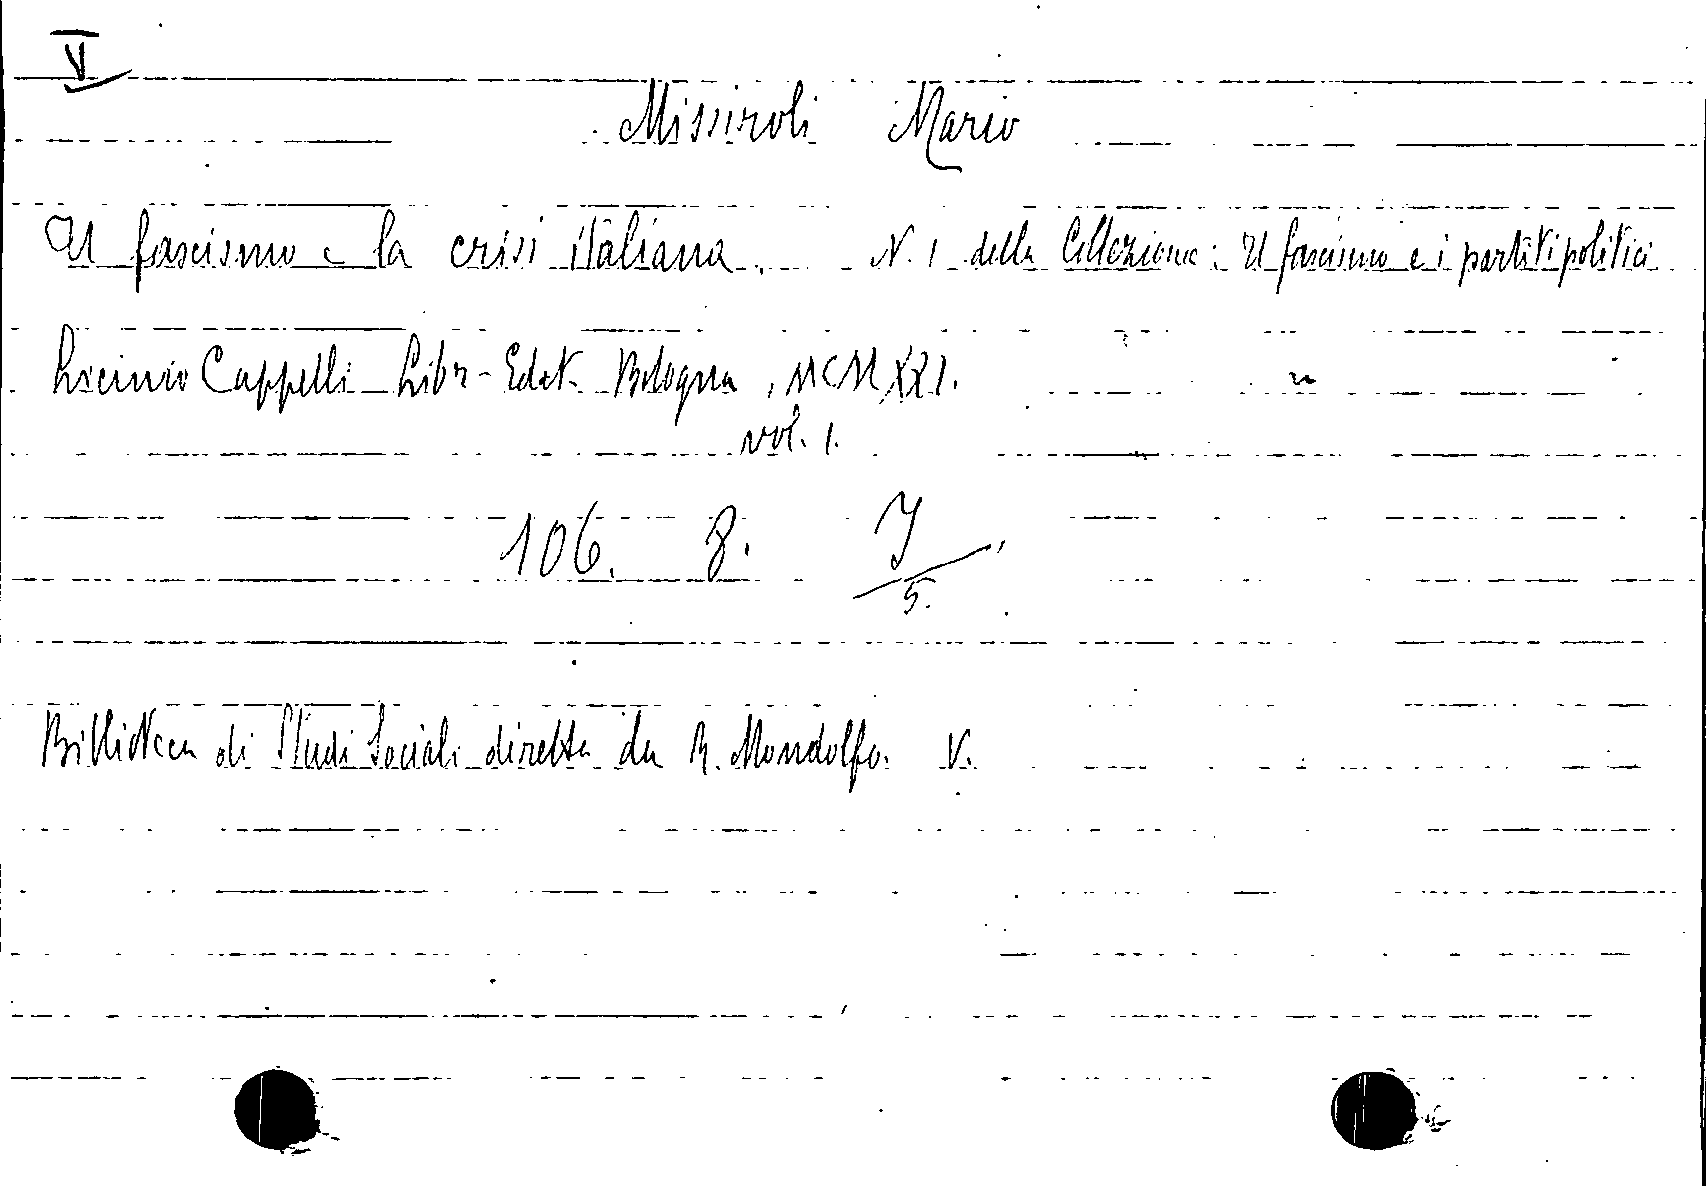 V
Missiroli Mario
Il fascismo e la crisi italiana. N. 1 della Collezione: Il fascismo e i partiti politici
Licinio Cappelli Libr-Edit. Bologna, MCMXXI.
vol. 1.
106. 8. I/5.
Biblioteca di Studi Sociali diretta da R. Mondolfo. V.